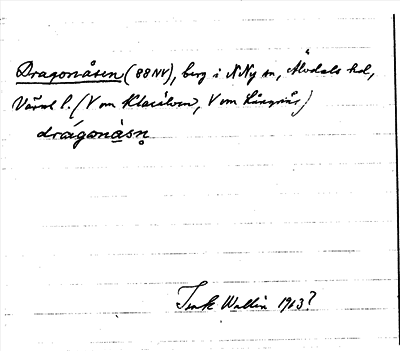 Dragonåsen (88NV), berg i NNy sn, Älvdals hd,
Värml l. (V om Klarälven, V om Långnäs)
drágonàsn̥
Wallin 1963?